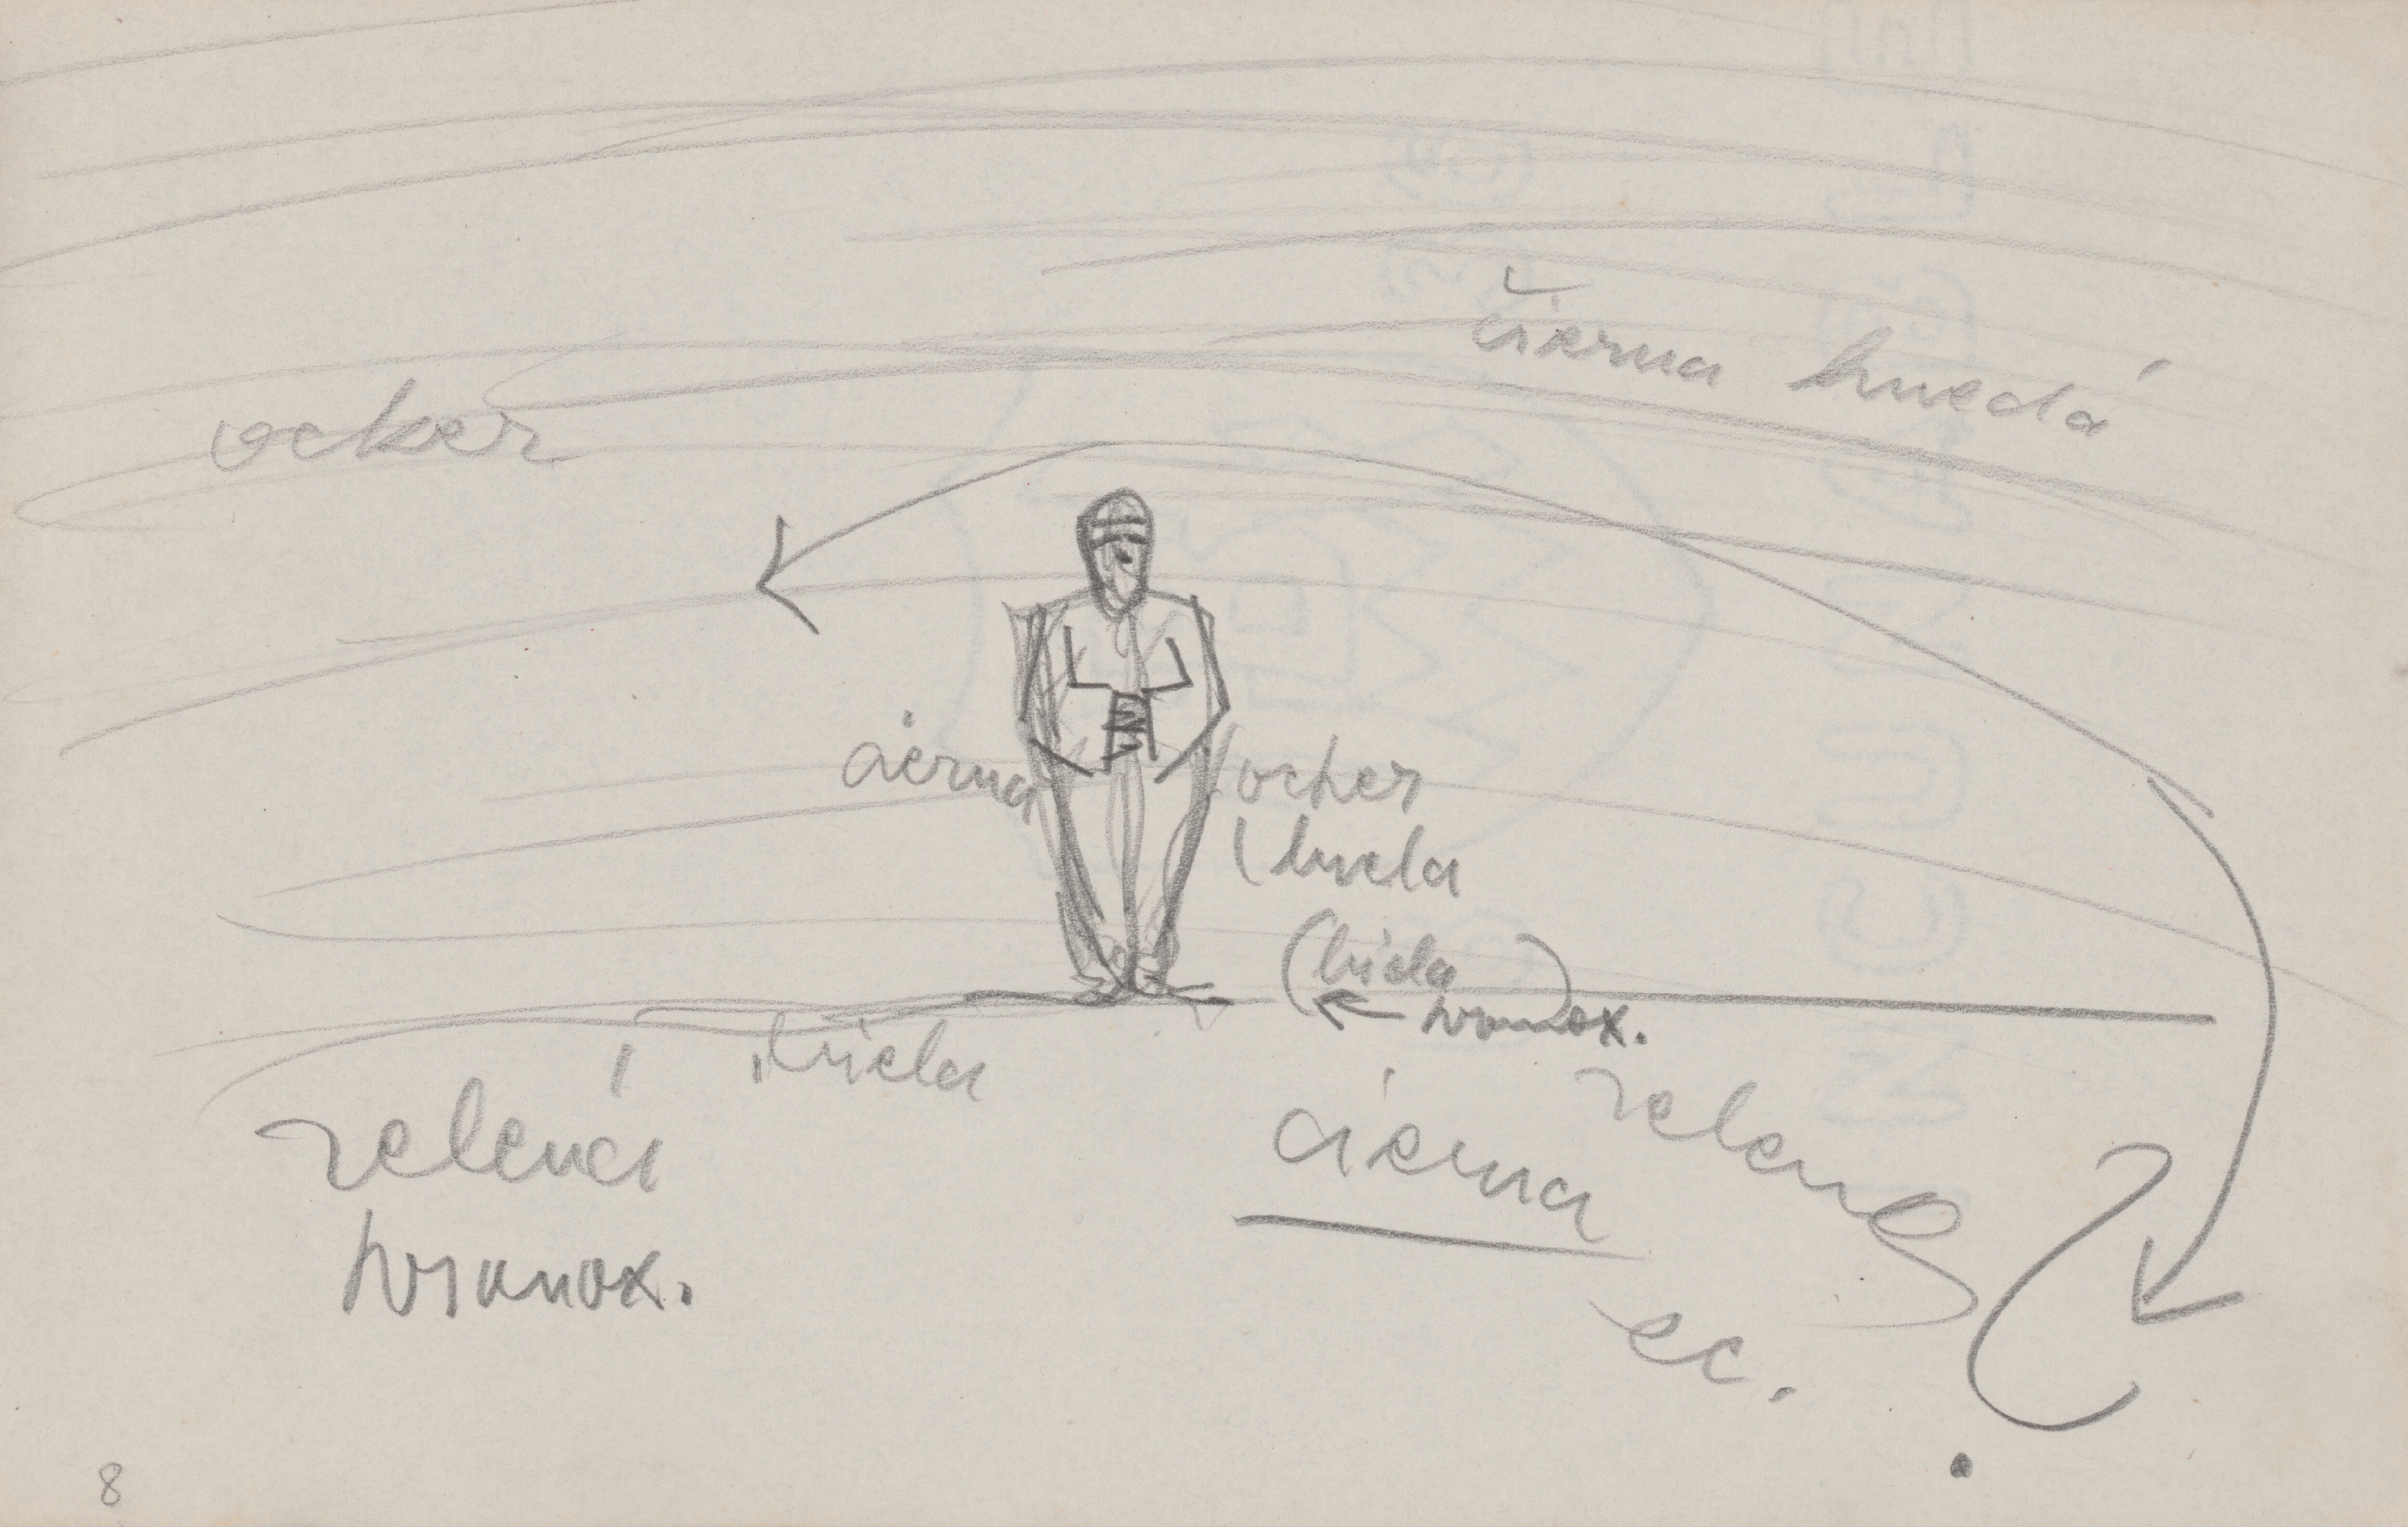 čierna hnedá
ocker
čierna
ocker
biela
(biela)
hromox.
biela
zelená
čierna
zelená
hromox.
ec.
8